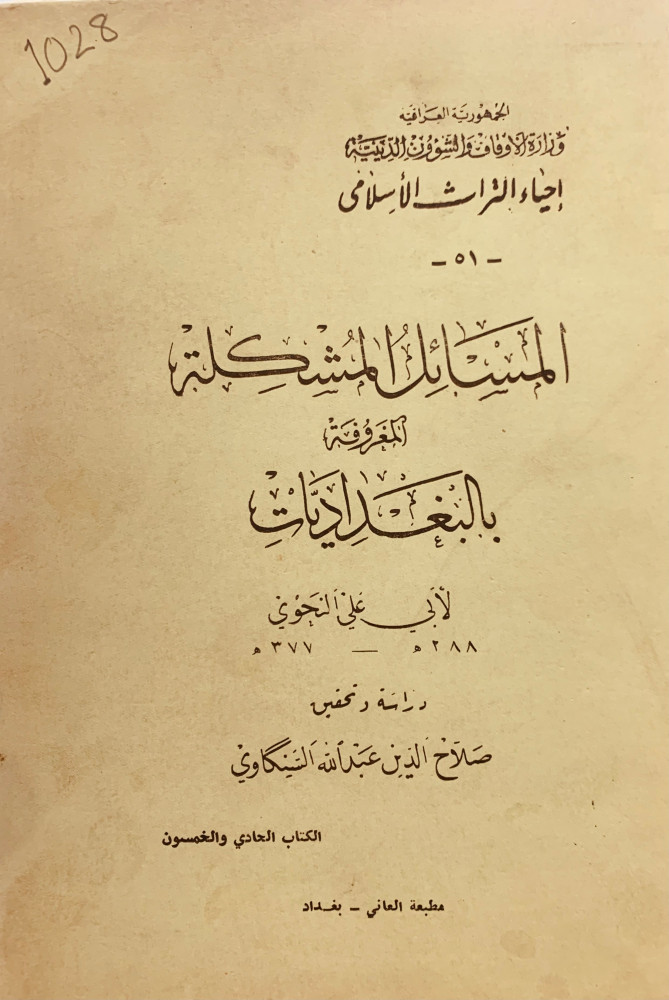 1028
الجمهورية العراقية
وزارة الأوقاف والشؤون الدينية
إحياء التراث الأسلامي
– ٥١ –
المسائل المشكلة
المعروفة
بالبغداديات
لأبي علي النحوي
٢٨٨ ه – ٣٧٧ ه
دراسة وتحقيق
صلاح الدين عبدالله السنگاوي
الكتاب الحادي والخمسون
مطبعة العاني – بغداد